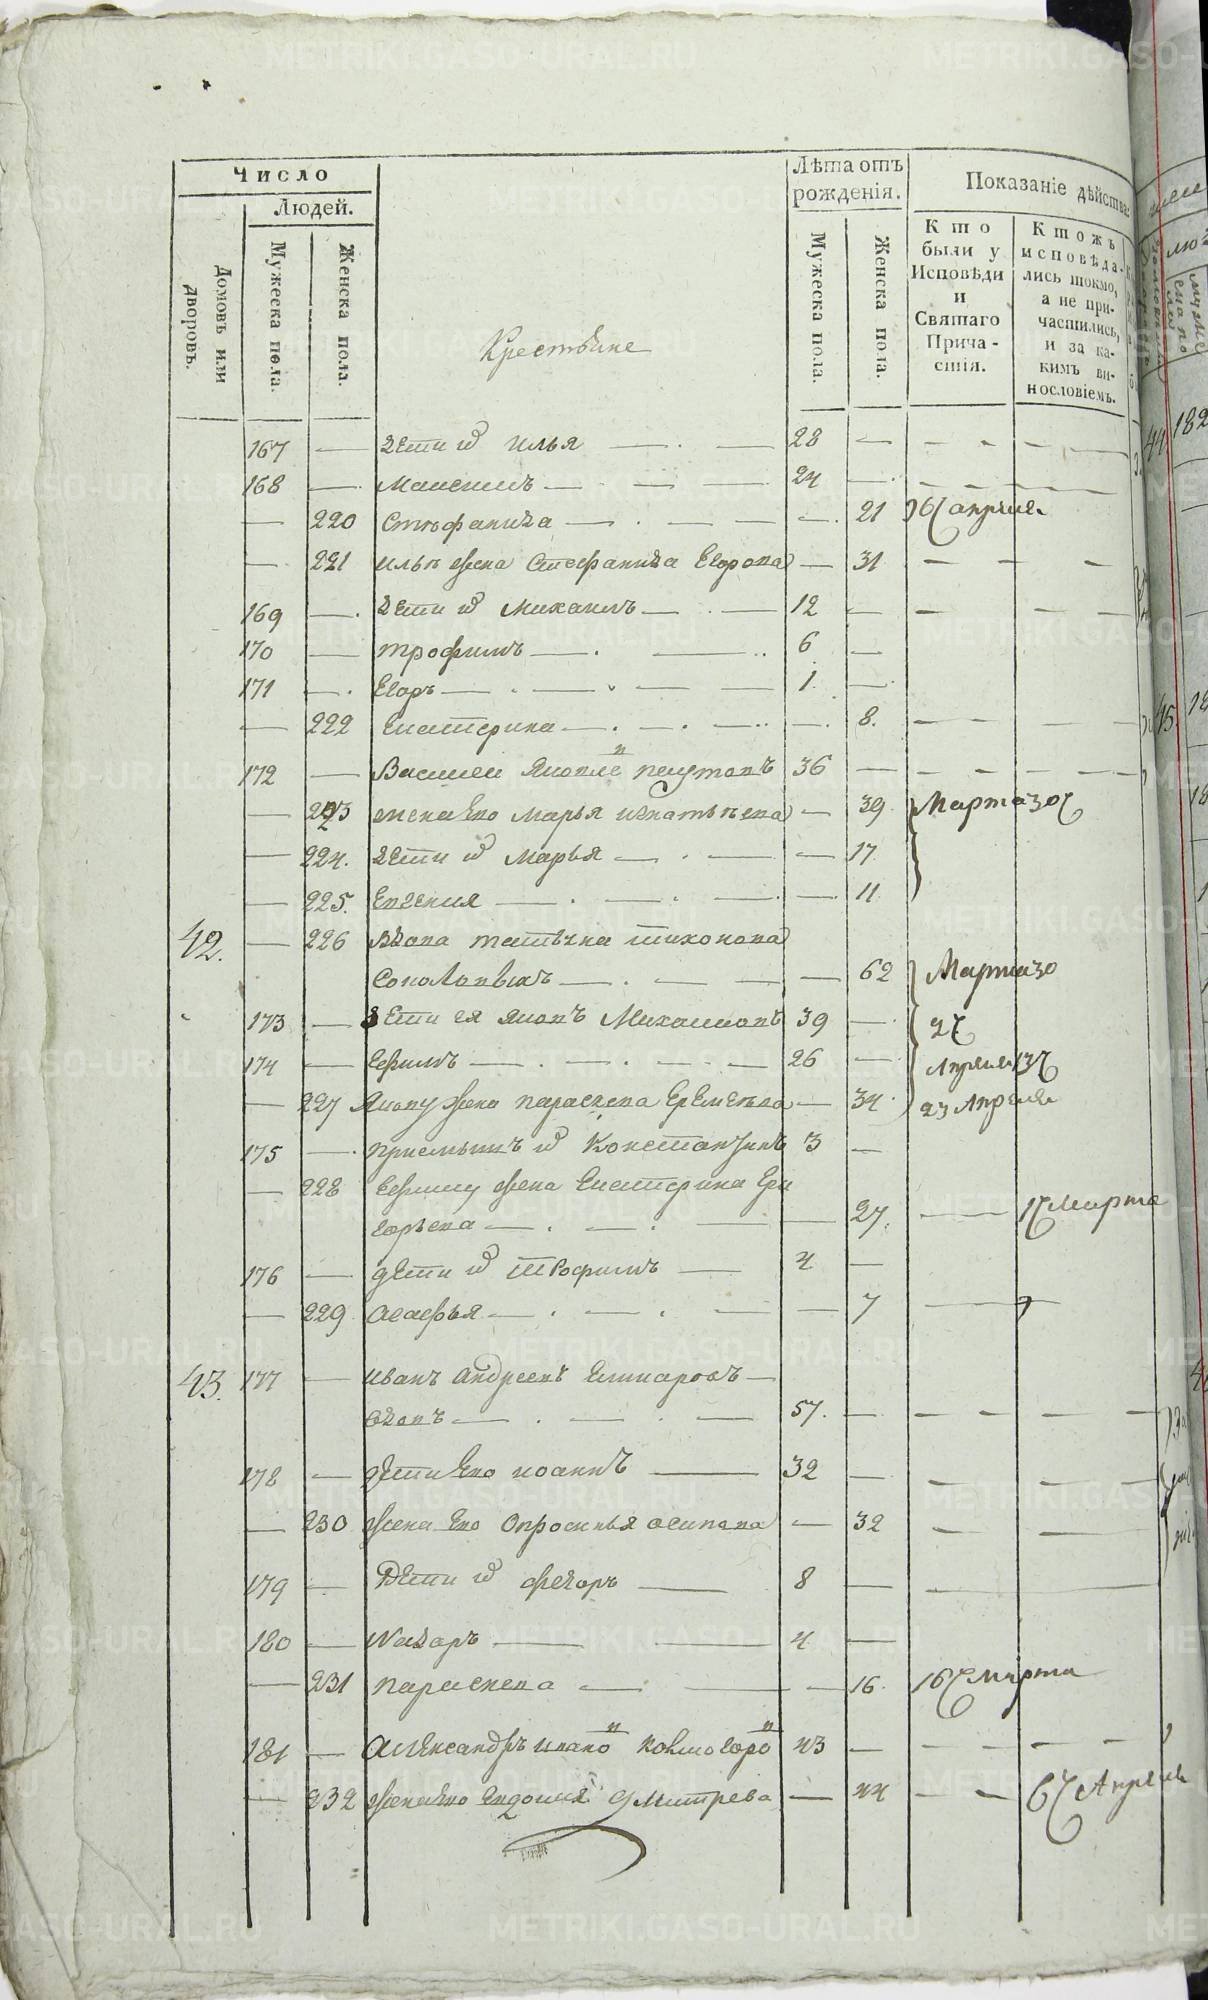 Число
Людей.
Домовъ или дворовъ.
Мужеска пола.
Женска пола.
Крестьяне
Лѣта отъ рожденія.
Мужеска пола.
Женска пола.
Показаніе дѣйства
Кто были у Исповѣди и Святаго Причастія.
Ктожъ исповѣдались токмо, а не причастились, и за какимъ винословіемъ.
167 — дети ѿ илья — 28 —
168 — Максимъ — 24 —
— 220 стефанида — 21 16 апреля
— 221 ильѣ жена Стефанида Егорова — 31
169 — дети ѿ Михаилъ — 12 —
170 — трофимъ — 6 —
171 — Егоръ — 1 —
— 222 Екатерина — 8.
172 — Василеи Яковле в 36 —
— 223 жена ево марья игнатьевна — 39 Марта 30
— 224. дети ѿ марья — 17
— 225. Евгения — 11
42. — 226 вдова татьяна тихонова
Соколовыхъ — 62 Марта 30
173 — дети ея яковъ Михаиловъ 39 — 27
174 — Ефимъ — 26 — Апреля 13
— 227 Якову жена параскева Еремеева — 34 23 Апреля
175 — приемышъ ѿ Константинъ 3 —
— 228 Ефиму жена Екатерина Гри
горьева — 27. 17 Марта
176 — дети ѿ трофимъ — 4 —
— 229 Агафья — 7
43. 177 — иванъ андреевъ
вдовъ — 57. —
178 — дети ево иоаннъ — 32 —
— 230 жена ево Опросинья осипова — 32
179 — Дети ѿ федоръ — 8 —
180 — Назаръ — 4 —
— 231 параскева — 16. 16 марта
181 — Александръ ивано в колмогоро в 43 —
— 232 жена ево Евдокия дмитрева — 44 6 Апреля
METRIKI.GASO-URAL.RU